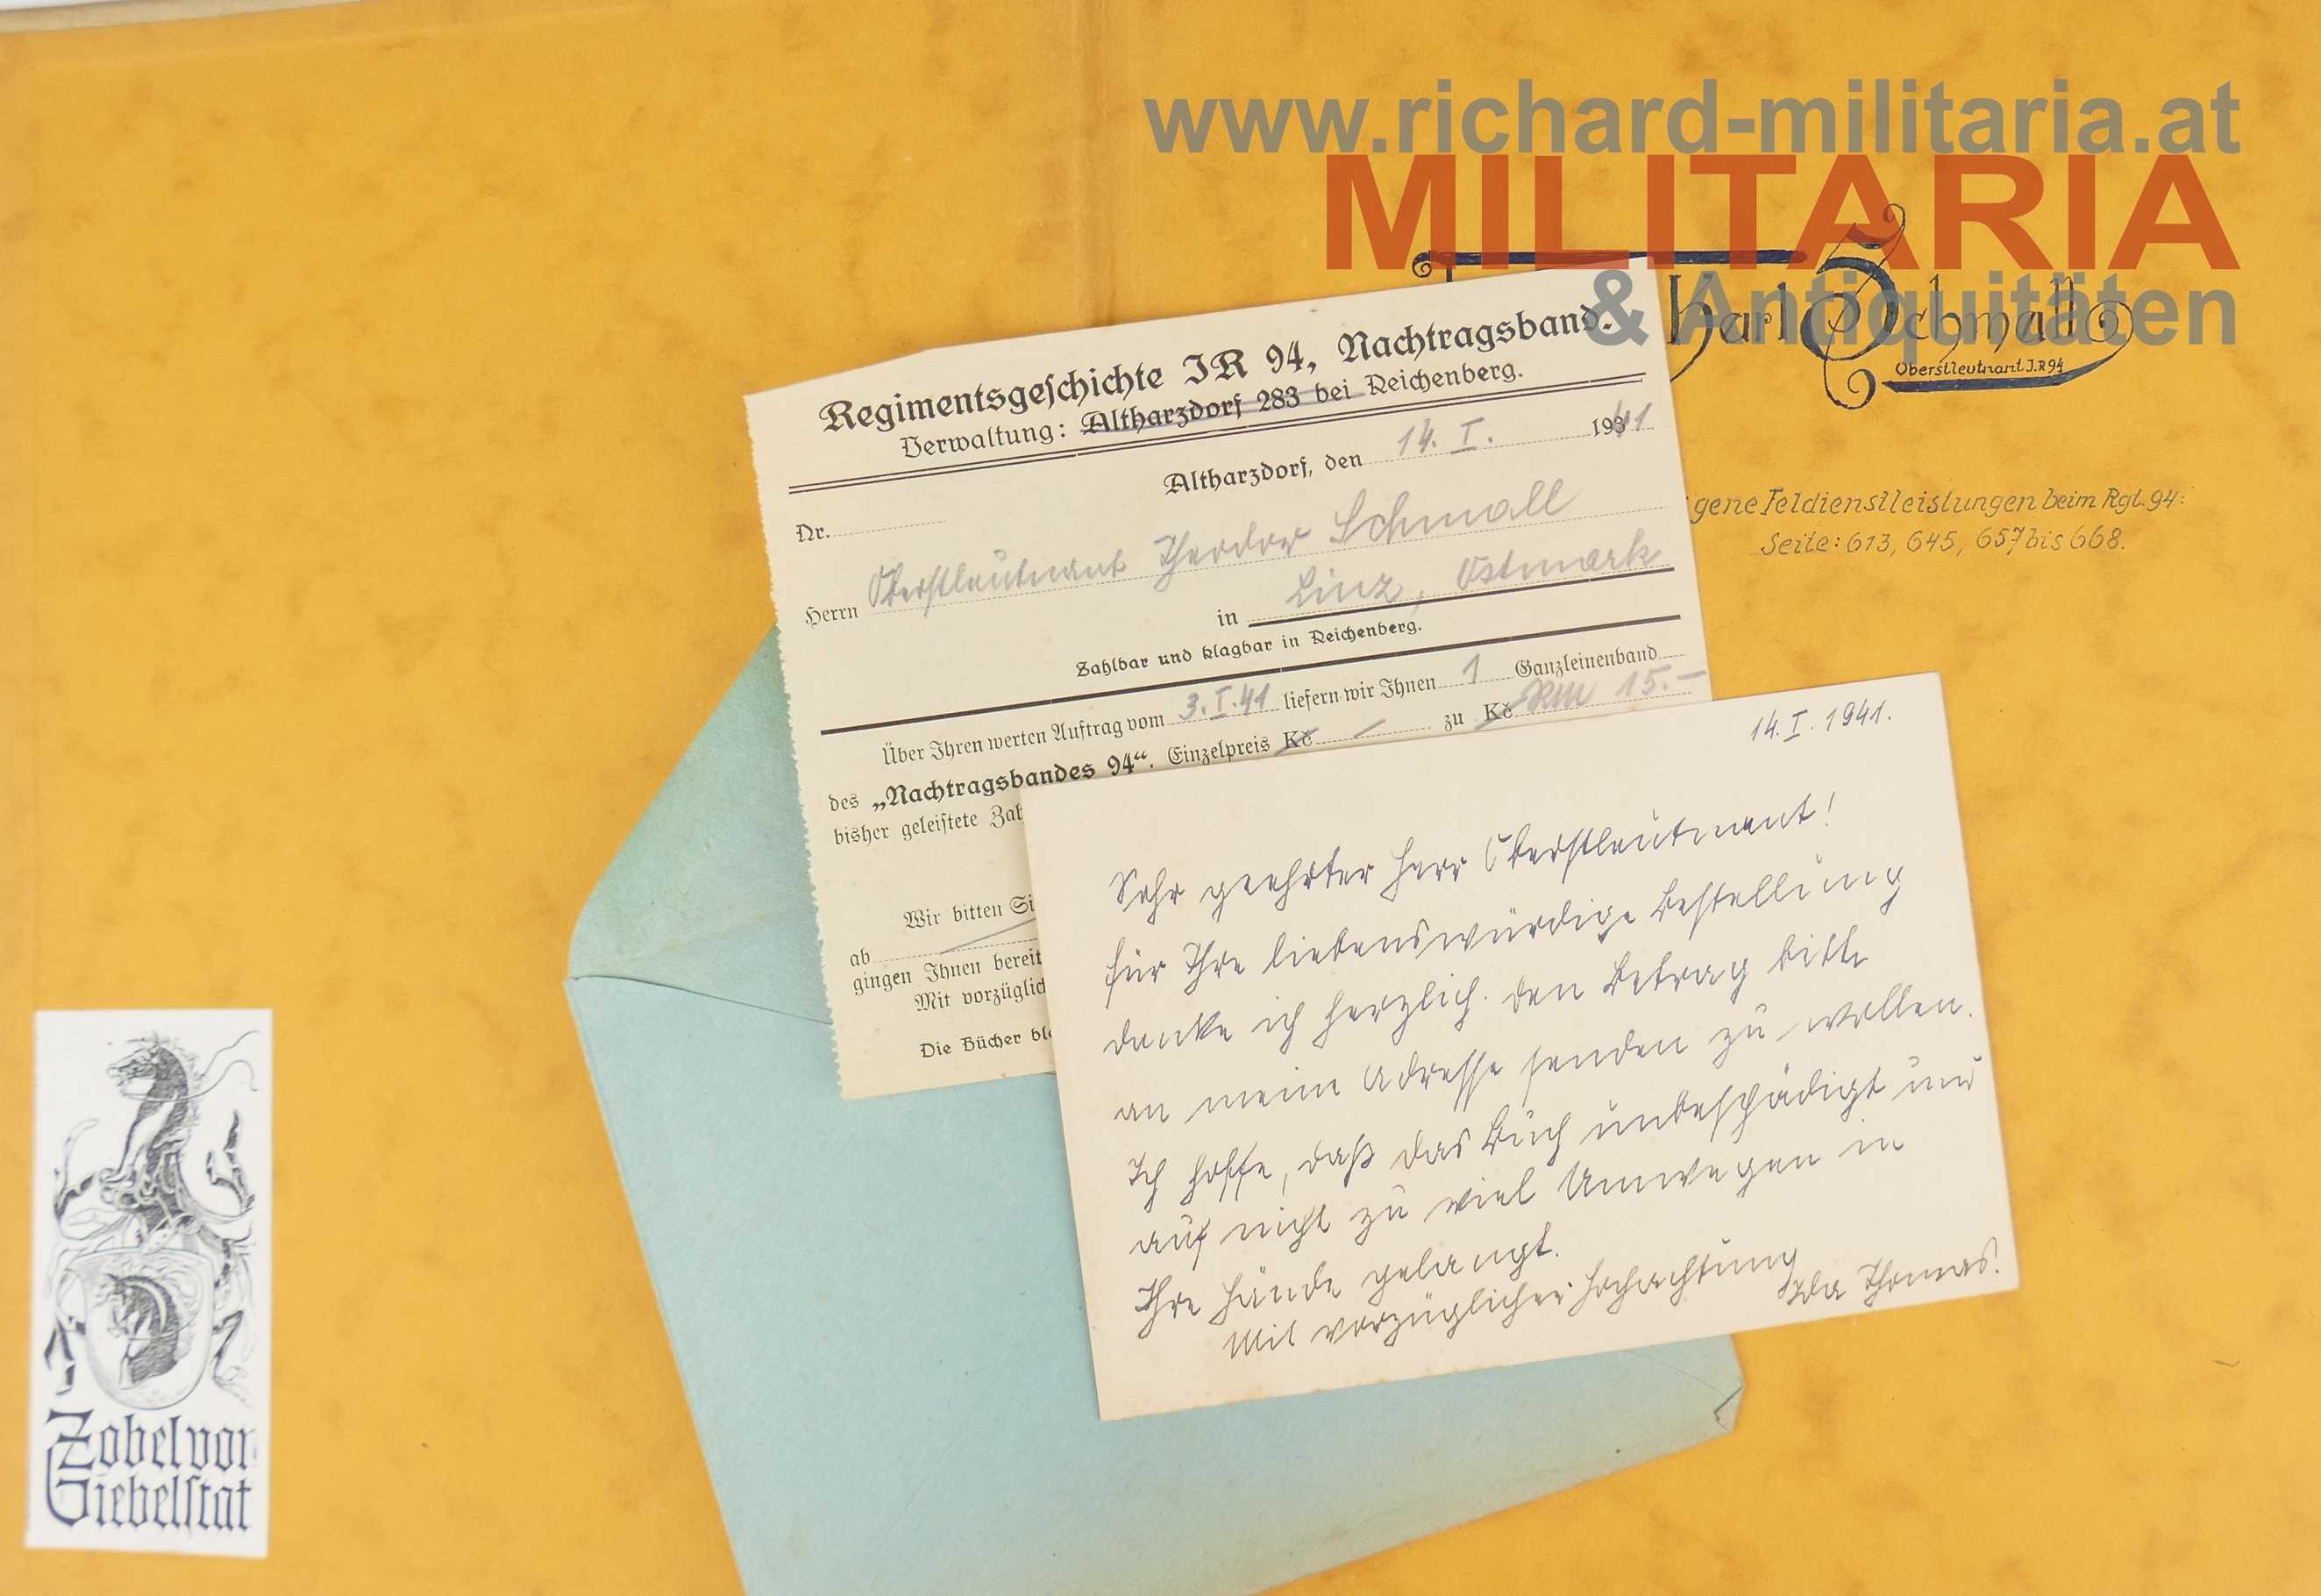 www.richard-militaria.at
MILITARIA
& Antiquitäten
Schmall
Oberstleutnant I.R 94
gene Feldienstleistungen beim Rgt. 94:
Seite: 613, 645, 657 bis 668.
Regimentsgeschichte IR 94, Nachtragsband.
Verwaltung: Altharzdorf 283 bei Reichenberg.
Altharzdorf, den 14. I. 1941
Nr.
Herrn Oberstleutnant Theodor Schmall
in Linz, Ostmark
Zahlbar und klagbar in Reichenberg.
Über Ihren werten Auftrag vom 3.I.41 liefern wir Ihnen 1 Ganzleinenband
des „Nachtragsbandes 94“. Einzelpreis Kč — zu Kč RM 15.–
bisher geleistete
Wir bitten
ab
gingen Ihnen bereit
Mit vorzüglich
Die Bücher
14. I. 1941.
Sehr geehrter Herr Oberstleutnant!
für Ihre liebenswürdige Bestellung
danke ich herzlich. Den Betrag bitte
an meine Adresse senden zu wollen.
Ich hoffe, daß das Buch unbeschädigt und
auf nicht zu viel Umwegen in
Ihre Hände gelangt.
Mit vorzüglicher Hochachtung
Ida Thomas.
Zobel von
Giebelstat